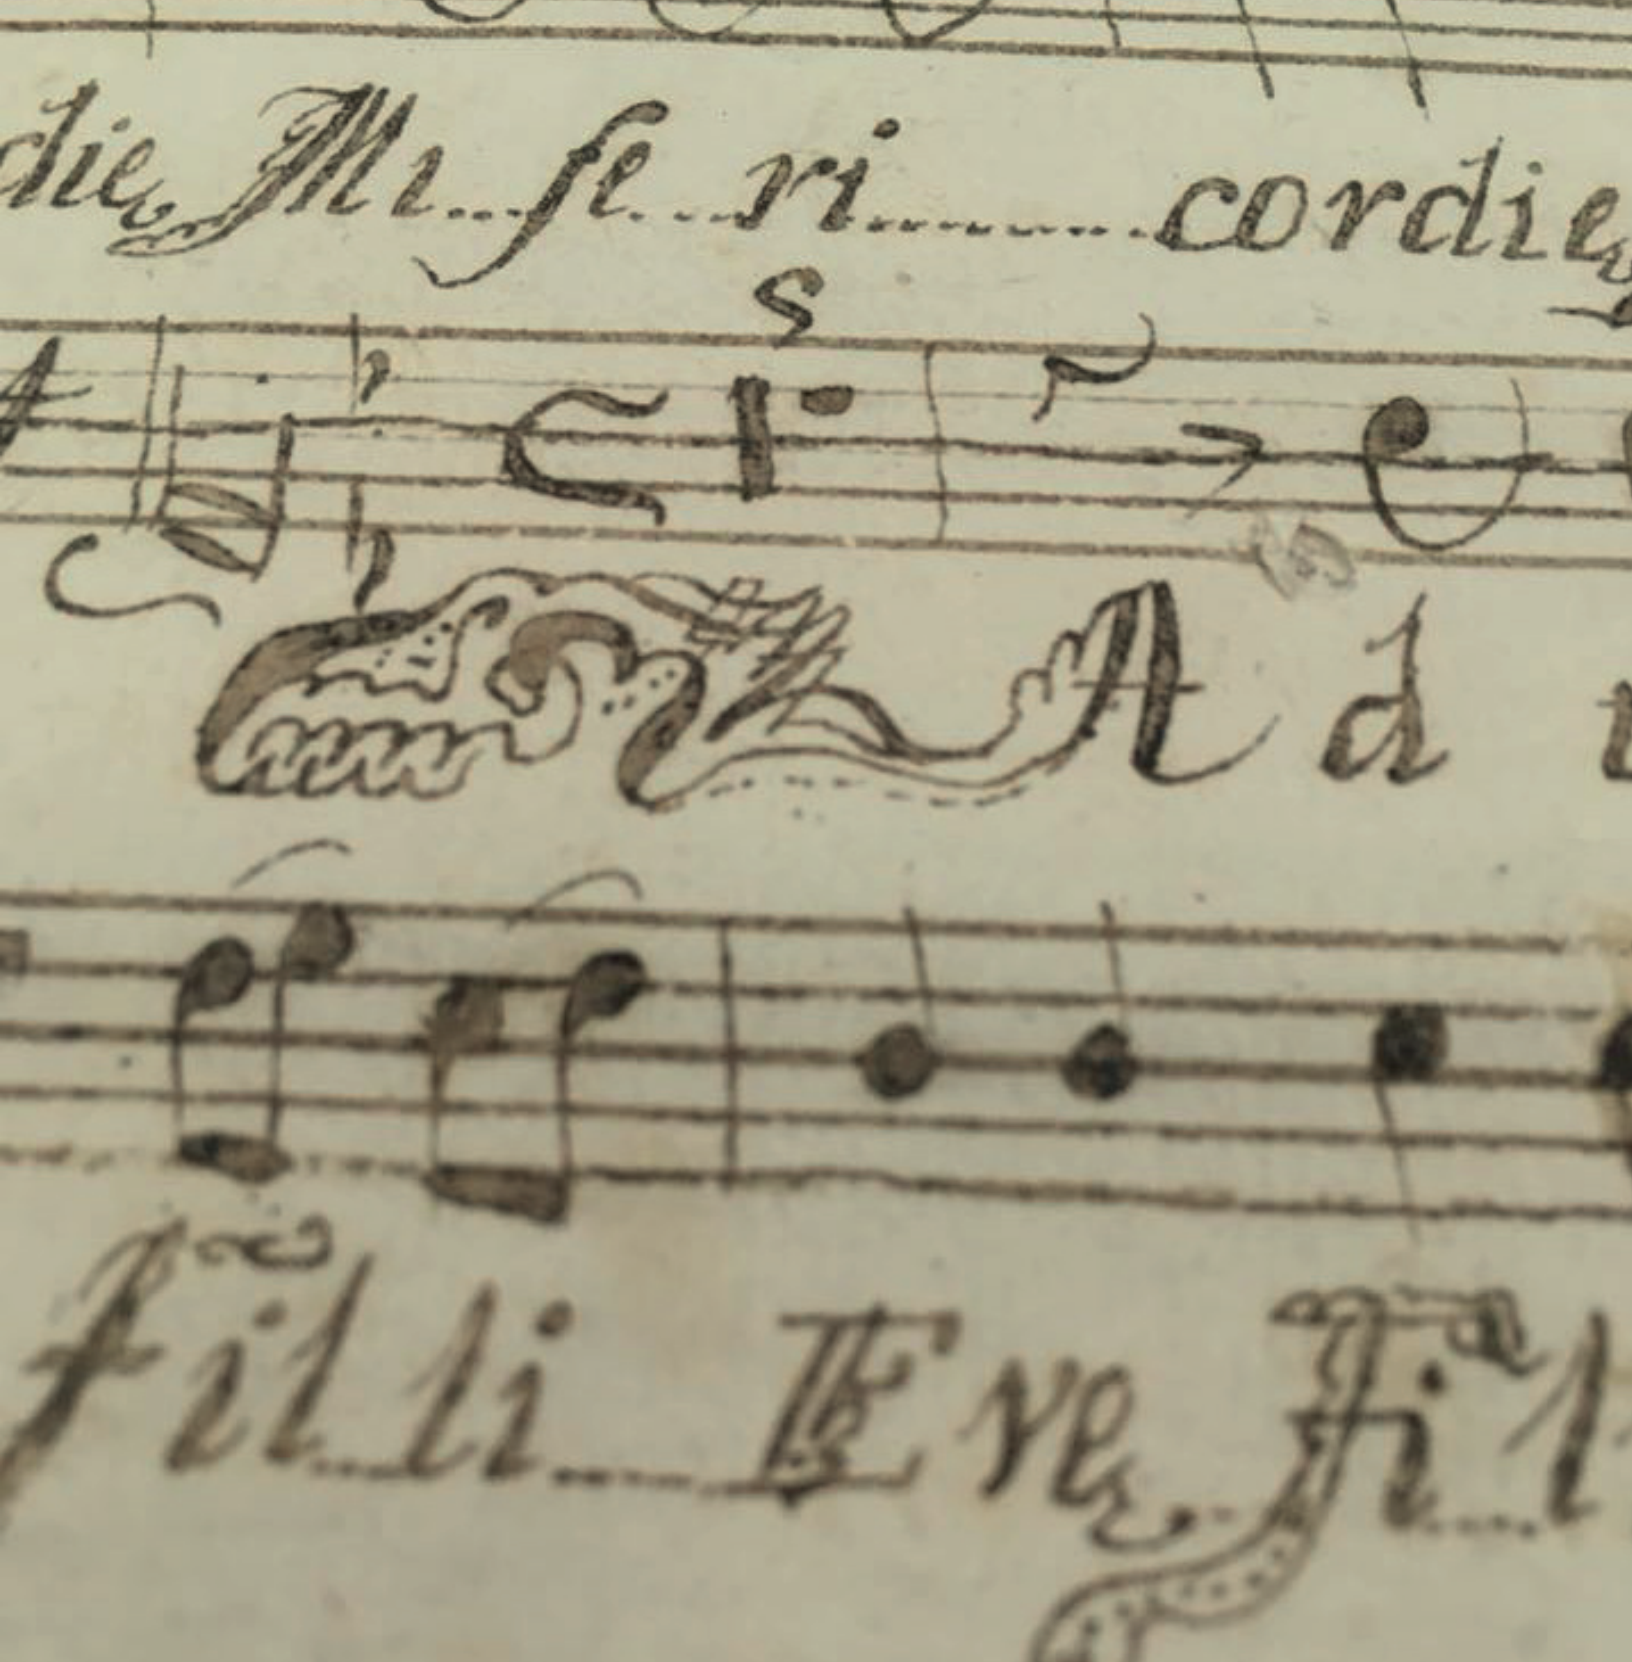 dię Mi...se...ri.......cordię
S
Ad
filli Evę Fil